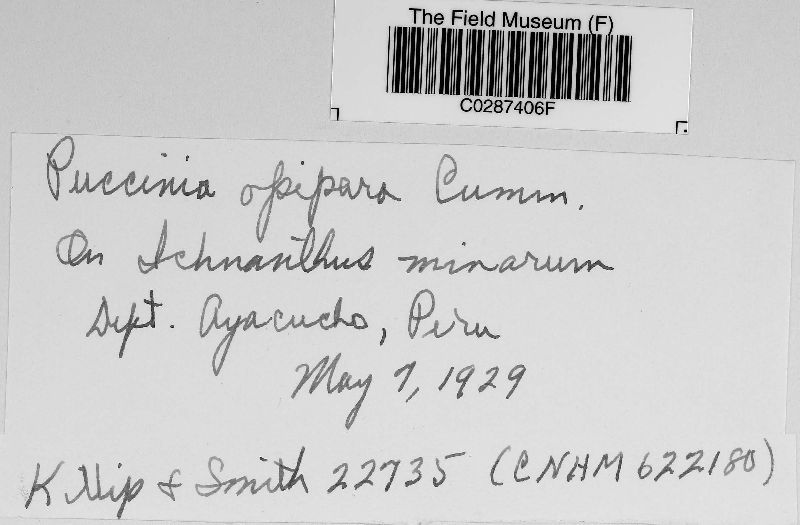 The Field Museum (F)
C0287406F
Puccinia opipara Cumm.
On Ichnanthus minarum
Dept. Ayacucho, Peru
May 7, 1929
Killip & Smith 22735 (CNHM 622180)